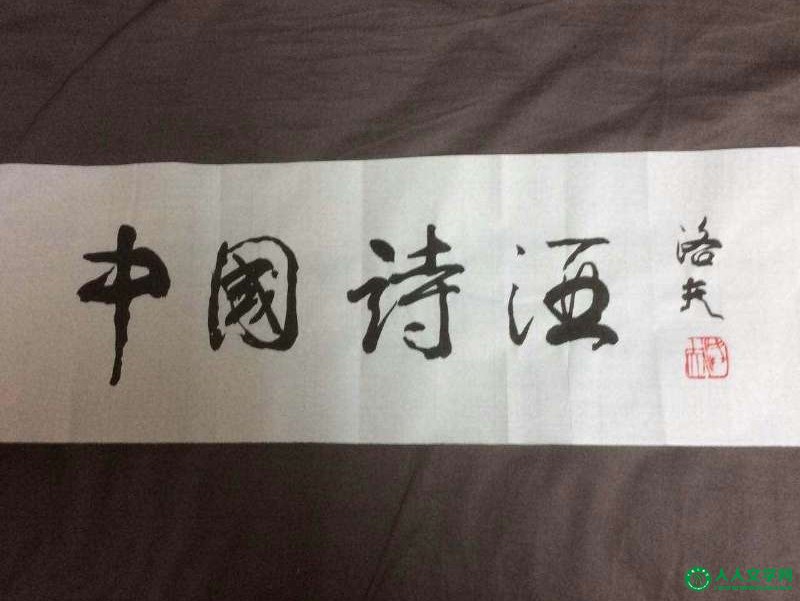 中國詩酒
洛夫
人人文学网